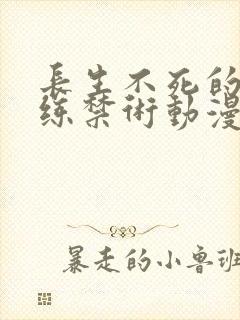 長生不死的
练禁術動漫
暴走的小鲁班